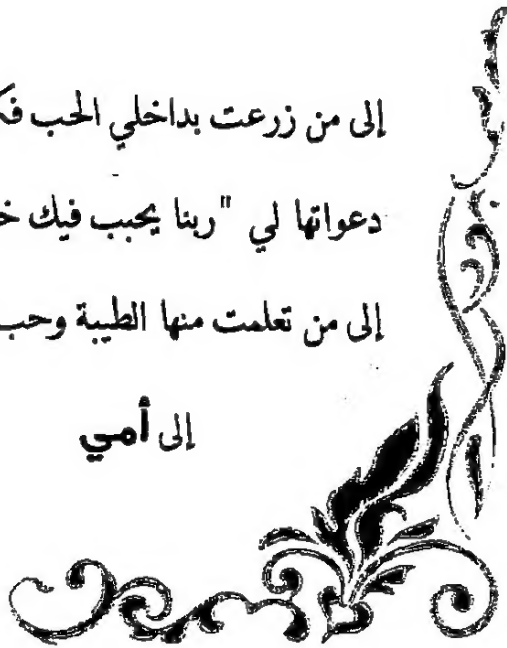 إلى من زرعت بداخلي الحب
دعواتها لي "ربنا يحبب فيك
إلى من تعلمت منها الطيبة وحب
إلى أمي